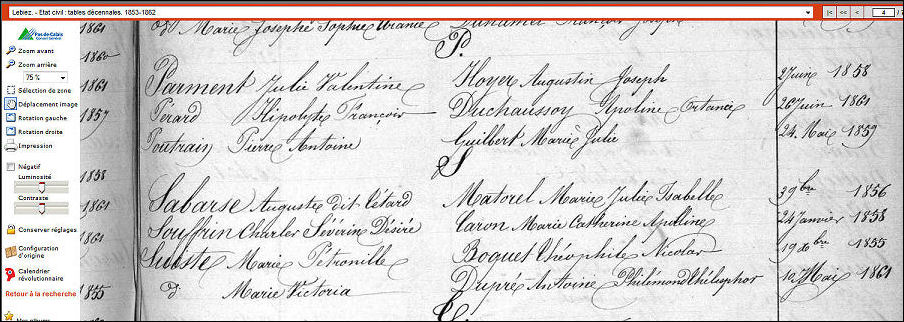 Lebiez. - Etat civil : tables décennales. 1853-1862
|< << < 4 /
Pas de Calais
Conseil Général
Zoom avant
Zoom arrière
75 %
Sélection de zone
Déplacement image
Rotation gauche
Rotation droite
Impression
Négatif
Luminosité
Contraste
Conserver réglages
Configuration d'origine
Calendrier révolutionnaire
Retour à la recherche
1861
1860
1861
1857
1858
1861
1861
1855
do Marie Josephe Sophie Uranie
P.
Parment Julie Valentine Hoyer Augustin Joseph 2 Juin 1858
Perard Hipolyte François Duchaussoy Apoline Ortance 26 Juin 1861
Poutrain Pierre Antoine Guilbert Marie Julie 24 Mai 1859
S
Sabarse Auguste dit Létard Matorel Marie Julie Isabelle 3 9bre 1856
Souffrin Charles Séverin Désiré Caron Marie Catherine Apolline 24 Janvier 1858
Suiste Marie Pétronille Boquet Théophile Nicolas 19 8bre 1855
d Marie Victoria Dupré Antoine Philimond thélesphor 10 Mai 1861